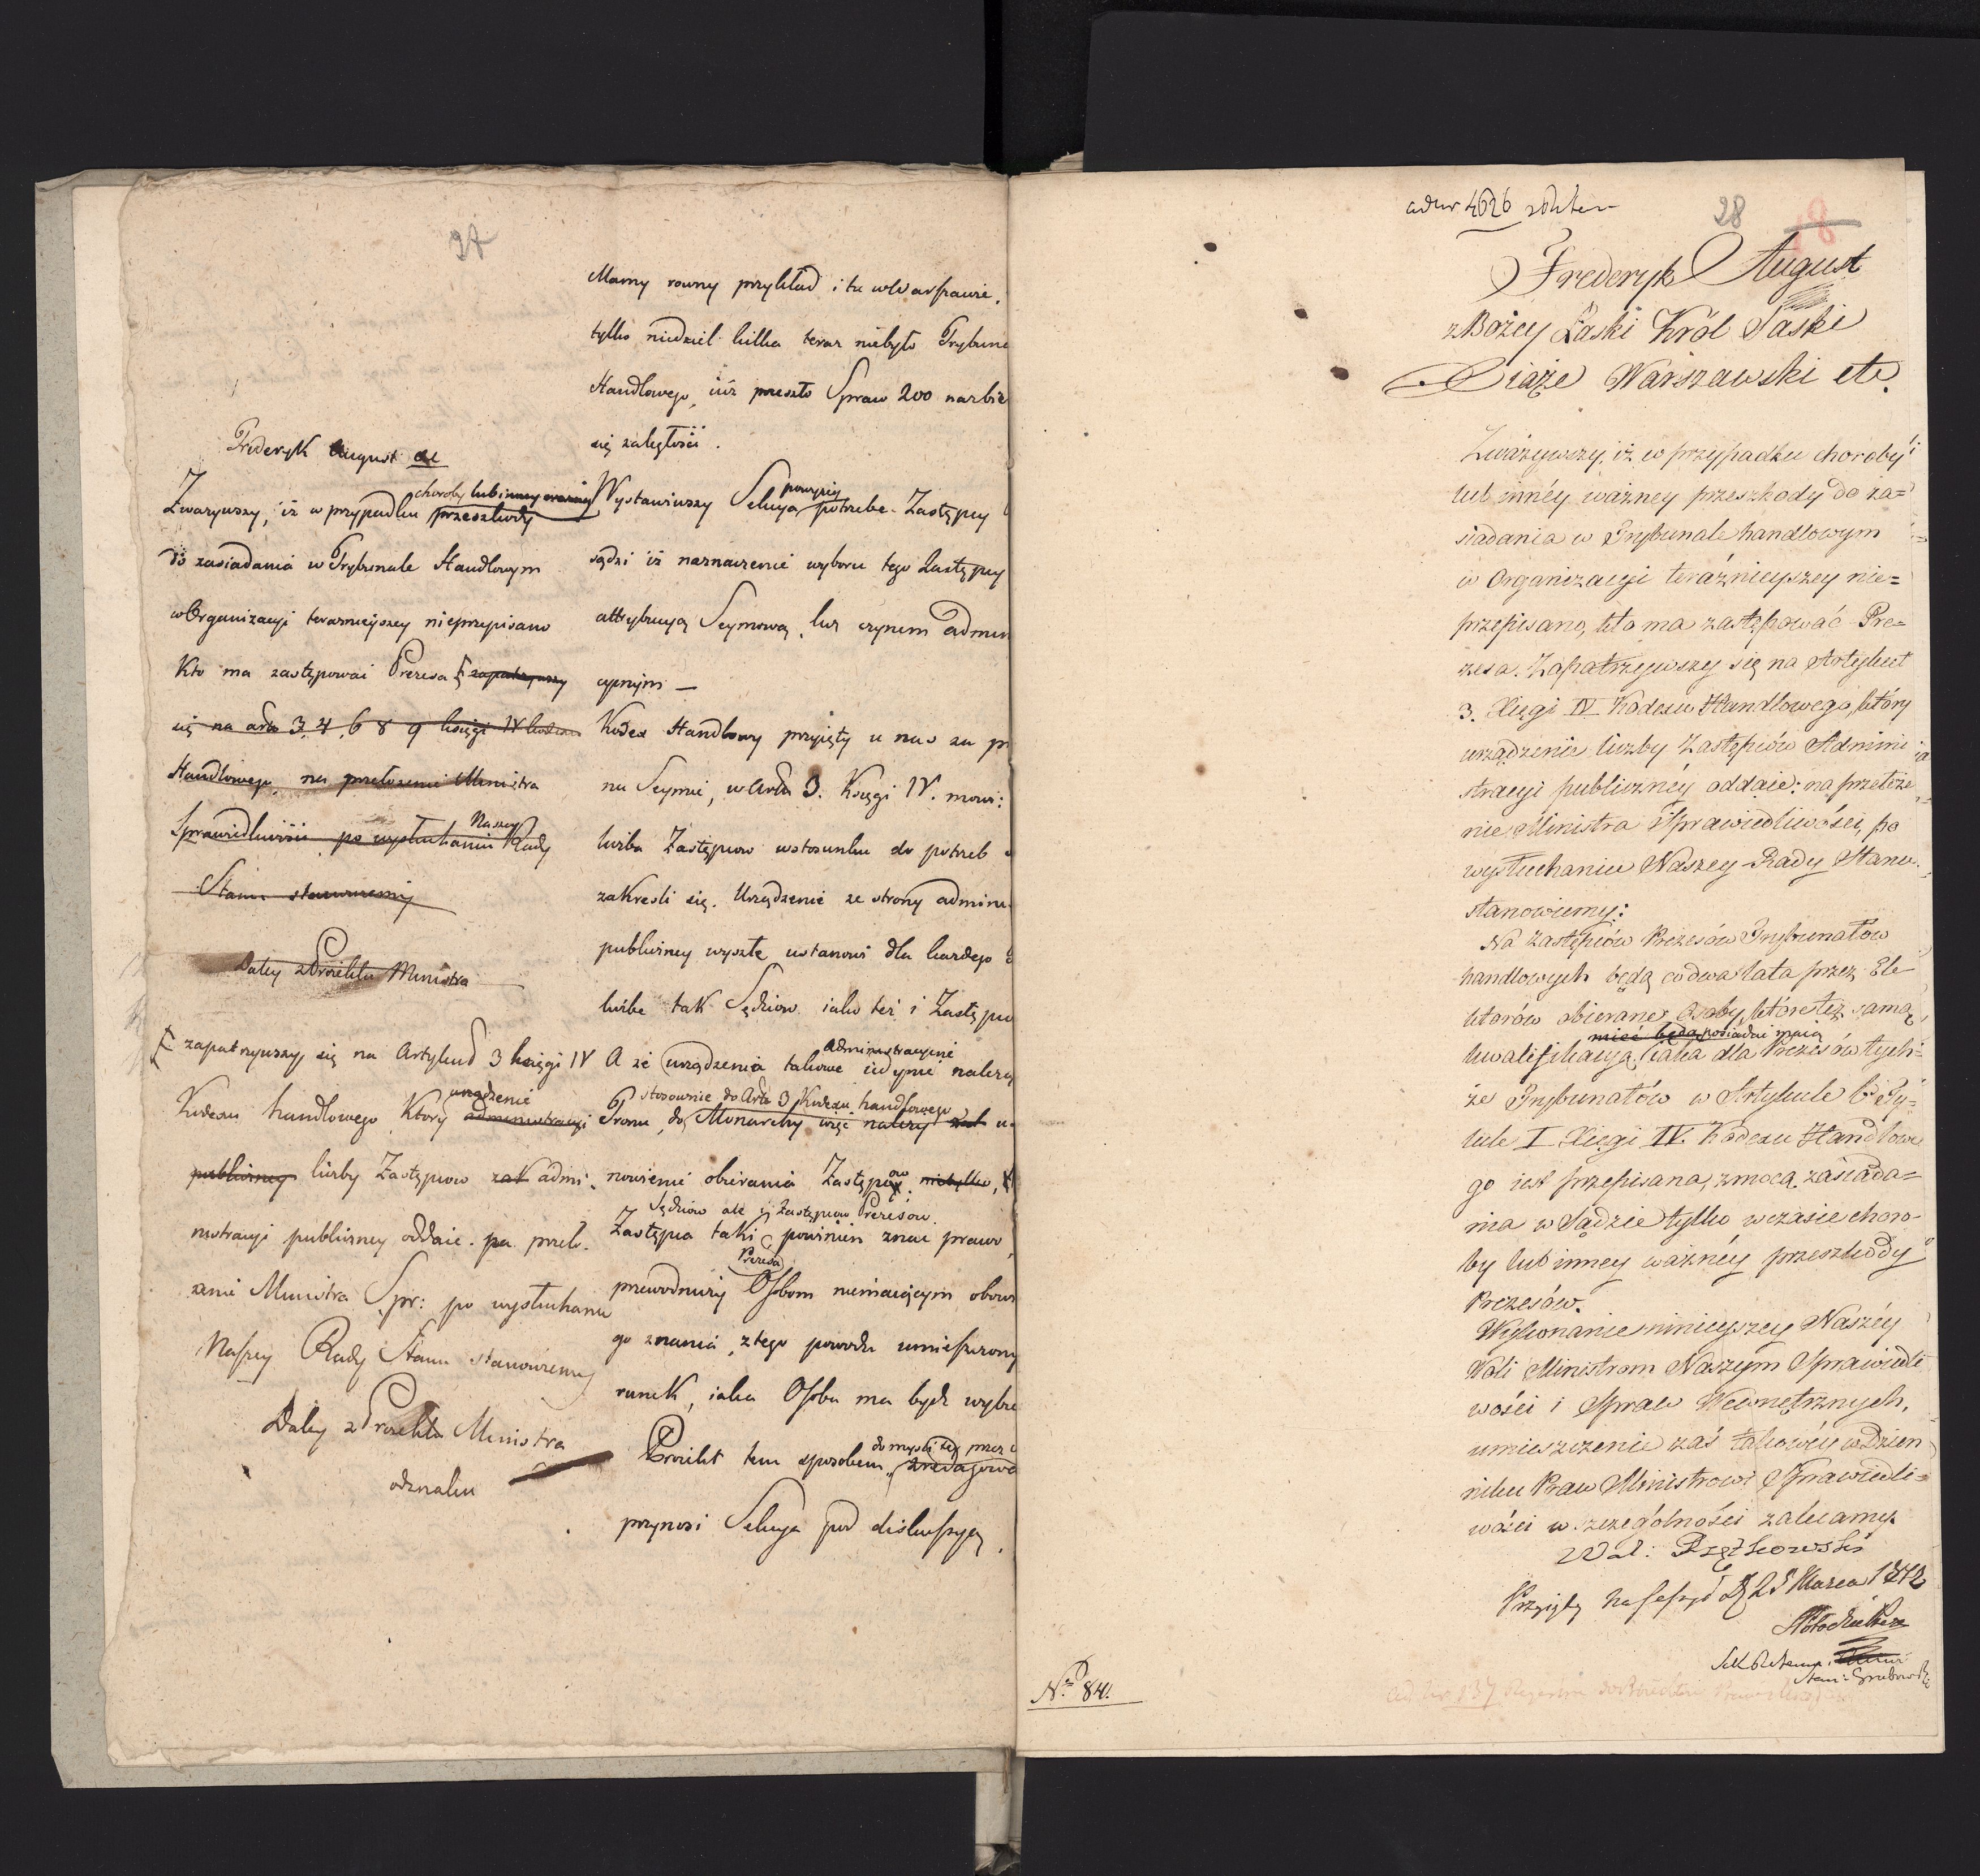 27
Fryderyk August etc
choroby lub inney ważney
Zważywszy, iż w przypadku przeszkody
do zasiadania w Trybunale Handlowym
w Organizacyi teraznieyszey nieprzepisano
Kto ma zastępować Prezesa zapatrzywszy
się na artł 3, 4, 6 8 9 księgi IV kodexu
Handlowego, na przełożenie Ministra
Naszey
Sprawiedliwości po wysłuchaniu Rady
Stanu stanowiemy
Daley z Proiektu Ministra
zapatrzywszy się na Artykuł 3 księgi IV
urządzenie
Kodexu handlowego, Ktory administracyi
publiczney liczby Zastępcow zak admi-
nistracyi publiczney oddaie. na przeło-
żenie Ministra Spr: po wysłuchaniu
Naszey Rady Stanu stanowiemy
Daley z Proiektu Ministra
odznaku
Mamy rowny przykład i tu w Warszawie,
tylko niedziel kilka teraz niebyło Trybuna
Handlowego, iuż przeszło Spraw 200 nazbie
się zaległości.
powyzey
Wystawiwszy Sekcya potrzebe Zastępcy
sądzi iż naznaczenie wyboru tego Zastępcy
attrybucyą Seymową, lecz czynem admin
cyinym —
Kodex Handlowy przyięty u nas za p
na Seymie, w Artle 3. Księgi IV. mowi:
liczba Zastępcow w stosunku do potrzeb
zakresli się. Urządzenie ze strony admini
publiczney wyszłe ustanowi dla każdego
liczbe tak Sędziow iako też i Zastępco
administracyine
A że urządzenia takowe iedynie należą
stosownie do Artu 3 Kodexu handlowego
Tronu, do Monarchy więc należy u
ow
nowienie obierania Zastępcy nietylko,
Sędziow ale i Zastępcow Prezesow.
Zastępca taki powinien znać prawo,
Prezesa
przewodniczy Osobom niemaiącym obow
go znania, z tego powodu umieszczony
runek, iaka Osoba ma bydź wybra
do mysli tey przez
Proiekt tem sposobem zredagowa
przynosi Sekcya pod diskussyą.
28
18
Fryderyk August
z Bożey Łaski Król Saski
Xiąże Warszawski etc.
Zważywszy, iż w przypadku choroby
lub innéy ważney przeszkody do za=
siadania w Trybunale handlowym
w Organizacyi teraźnieyszey nie=
przepisano, kto ma zastępować Pre=
zesa. Zapatrzywszy się na Artykuł
3. Xięgi IV Kodexu Handlowego, który
urządzenie liczby Zastępców Admini
stracyi publicznéy oddaie: na przełoże
nie Ministra Sprawiedliwości, po
wysłuchaniu Naszey Rady Stanu.
stanowiemy:
Na Zastępców Prezesów Trybunałów
handlowych będą co dwa lata przez Ele
ktorów obierane Osoby, które tęż samą
mieć będą posiadać maią
kwalifikacyą iaka dla Prezesów tych=
że Trybunałów w Artykule 6 Ty=
tule I Xięgi IV. Kodexu Handlowe
go iest przepisana, z mocą zasiada=
nia w Sądzie tylko w czasie choro-
by lub inney ważnéy przeszkody
Prezesów.
Wykonanie ninieyszey Naszéy
Woli Ministrom Naszym Sprawiedli
wości i Spraw Wewnętrznych,
umieszczenie zaś takowéy w Dzien
niku Praw Ministrowi Sprawiedli=
wości w szczególności zalecamy.
Wal: Rzętkowski
Przyięty na Sessyi D 25 Marca 1812
Stan: Grabowski
No 84.